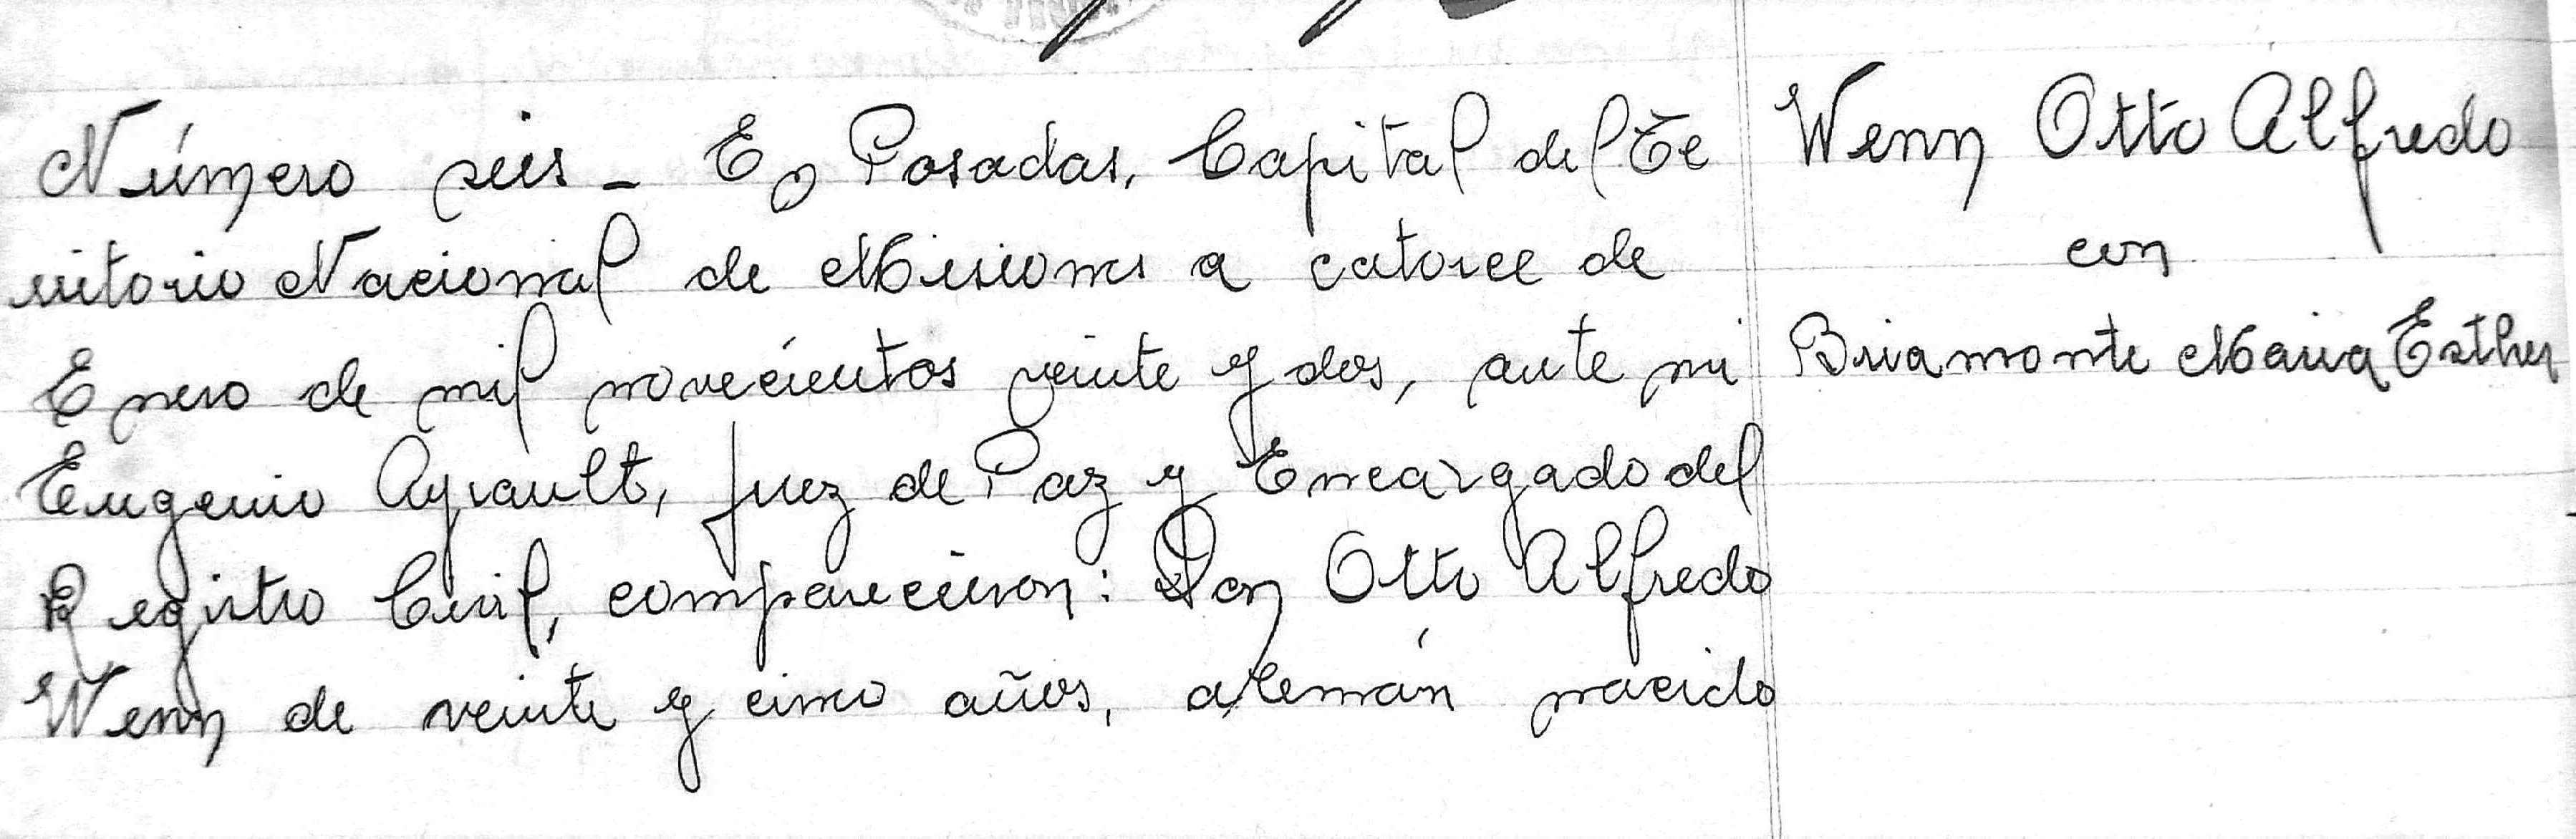 Número seis - En Posadas, Capital del Te
rritorio Nacional de Misiones a catorce de
Enero de mil novecientos veinte y dos, ante mi
Eugenio Ayrault, Juez de Paz y Encargado del
Registro Civil, comparecieron: Don Otto Alfredo
Wenn de veinte y cinco años, alemán nacido
Wenn Otto Alfredo
con
Briamonte Maria Esther